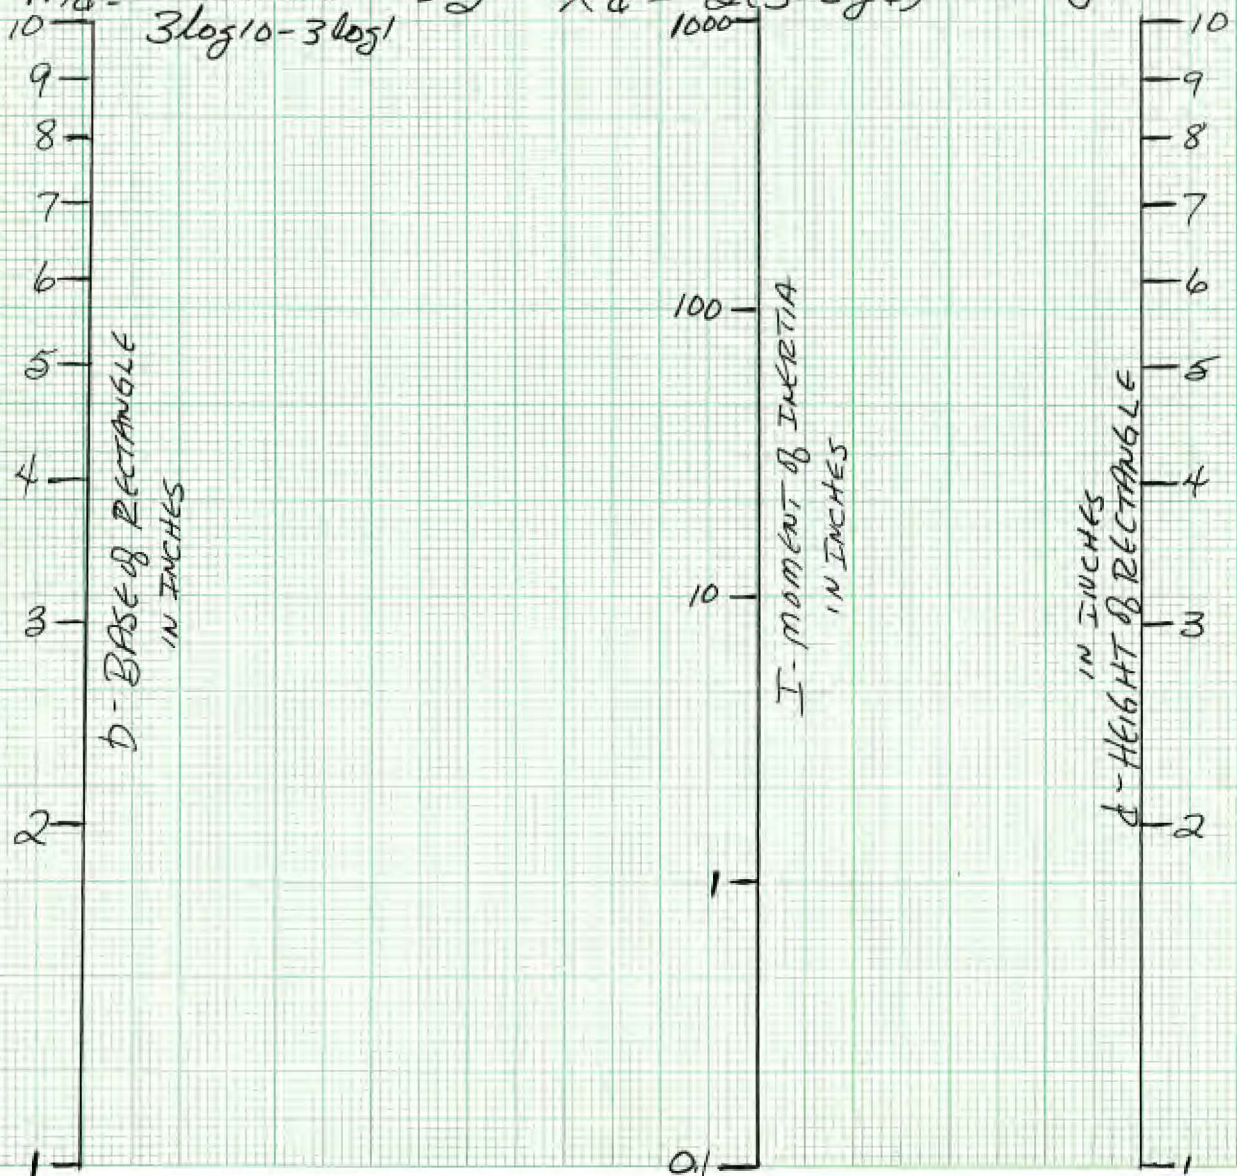 3log10-3log1
10
9
8
7
6
5
4
3
2
1
b- BASE of RECTANGLE
IN INCHES
1000
100
10
1
0.1
I- MOMENT of INERTIA
IN INCHES
10
9
8
7
6
5
4
3
2
1
IN INCHES
d- HEIGHT of RECTANGLE